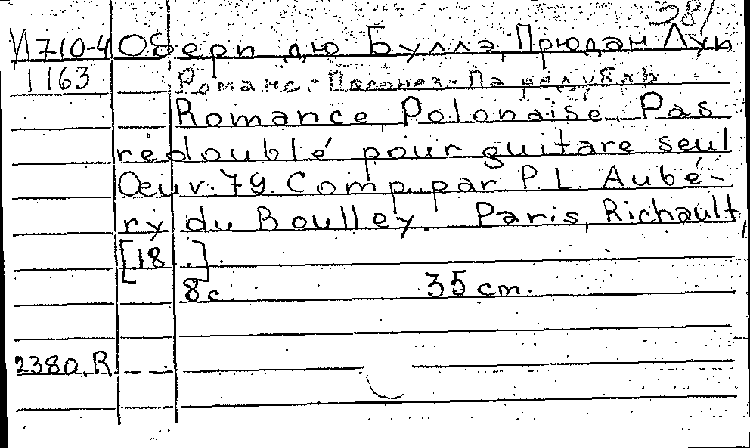 38/
И710-4 Обери дю Буллэ, Прюдан Луи
1163 Романс.- Полонез.- Па редубль
Romance, Polonaise, Pas
redoublé pour guitare seul
Œuv. 79. Comp. par P. L. Aubé-
ry du Boulley. Paris, Richault,
[18 .]
8 с. 35 cm.
2380.R.